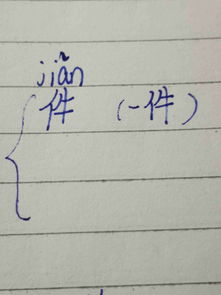 jiǎn
件 (一件)